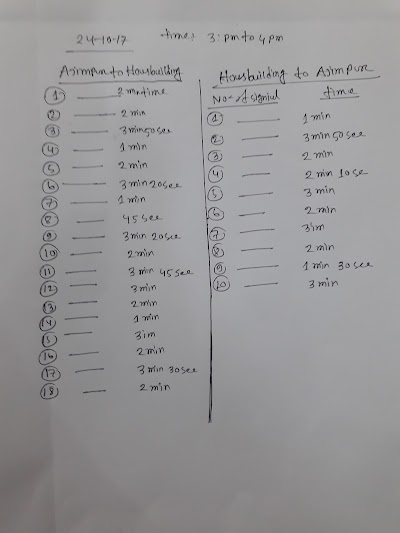 24-10-17 time: 3:pm to 4pm
Azimpur to Housbuilding
① 2 min time
② 2 min
③ 3 min 50 sec
④ 1 min
⑤ 2 min
⑥ 3 min 20 sec
⑦ 1 min
⑧ 45 sec
⑨ 3 min 20 sec
⑩ 2 min
⑪ 3 min 45 sec
⑫ 3 min
⑬ 2 min
⑭ 1 min
⑮ 3im
⑯ 2 min
⑰ 3 min 30 sec
⑱ 2 min
Housbuilding to Azimpur
No of signal time
① 1 min
② 3 min 50 sec
③ 2 min
④ 2 min 10 sec
⑤ 3 min
⑥ 2 min
⑦ 3im
⑧ 2 min
⑨ 1 min 30 sec
⑩ 3 min